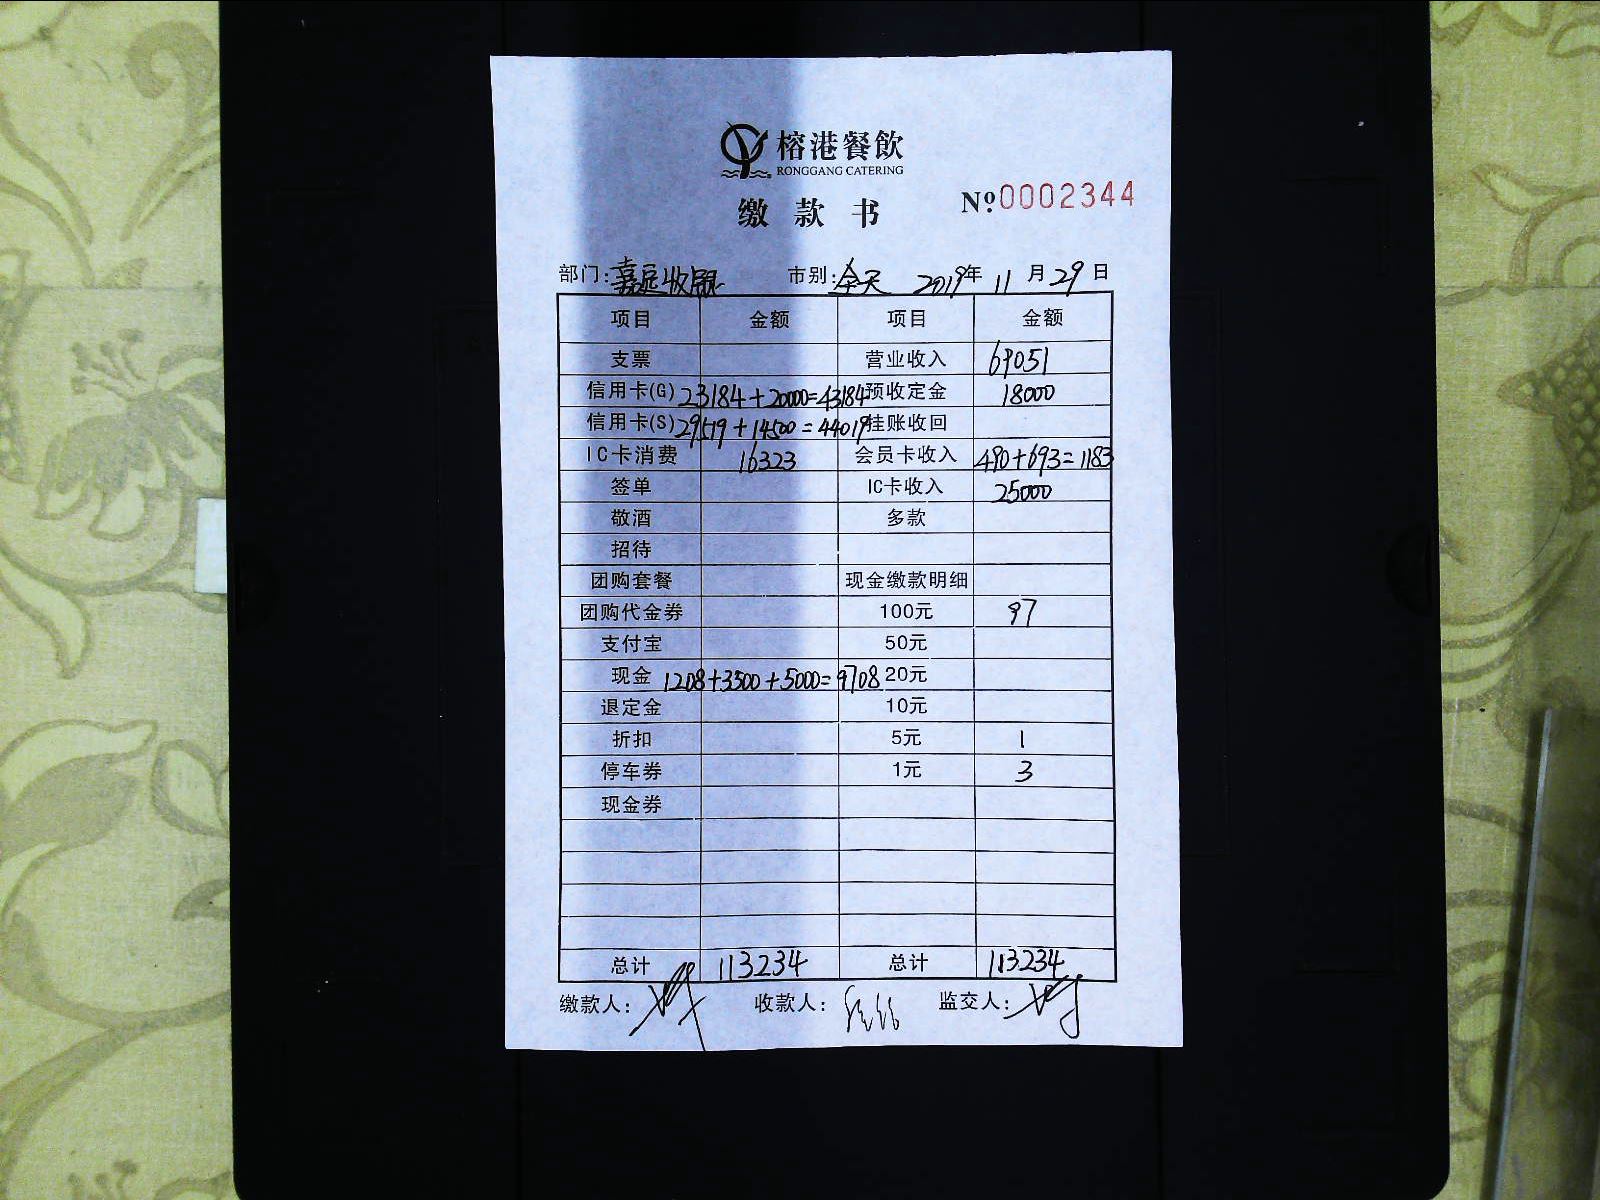 榕港餐飲
RONGGANG CATERING
缴款书
№0002344
部门: 嘉定收银 市别: 全天 2019年 11月 29日
项目 金额 项目 金额
支票 营业收入 69051
信用卡(G) 23184+20000=43184 预收定金 18000
信用卡(S) 29519+14500=44019 挂账收回
IC卡消费 16323 会员卡收入 490+693=1183
签单 IC卡收入 25000
敬酒 多款
招待
团购套餐 现金缴款明细
团购代金券 100元 97
支付宝 50元
现金 1208+3500+5000=9708 20元
退定金 10元
折扣 5元 1
停车券 1元 3
现金券
总计 113234 总计 113234
缴款人: 收款人: 监交人: